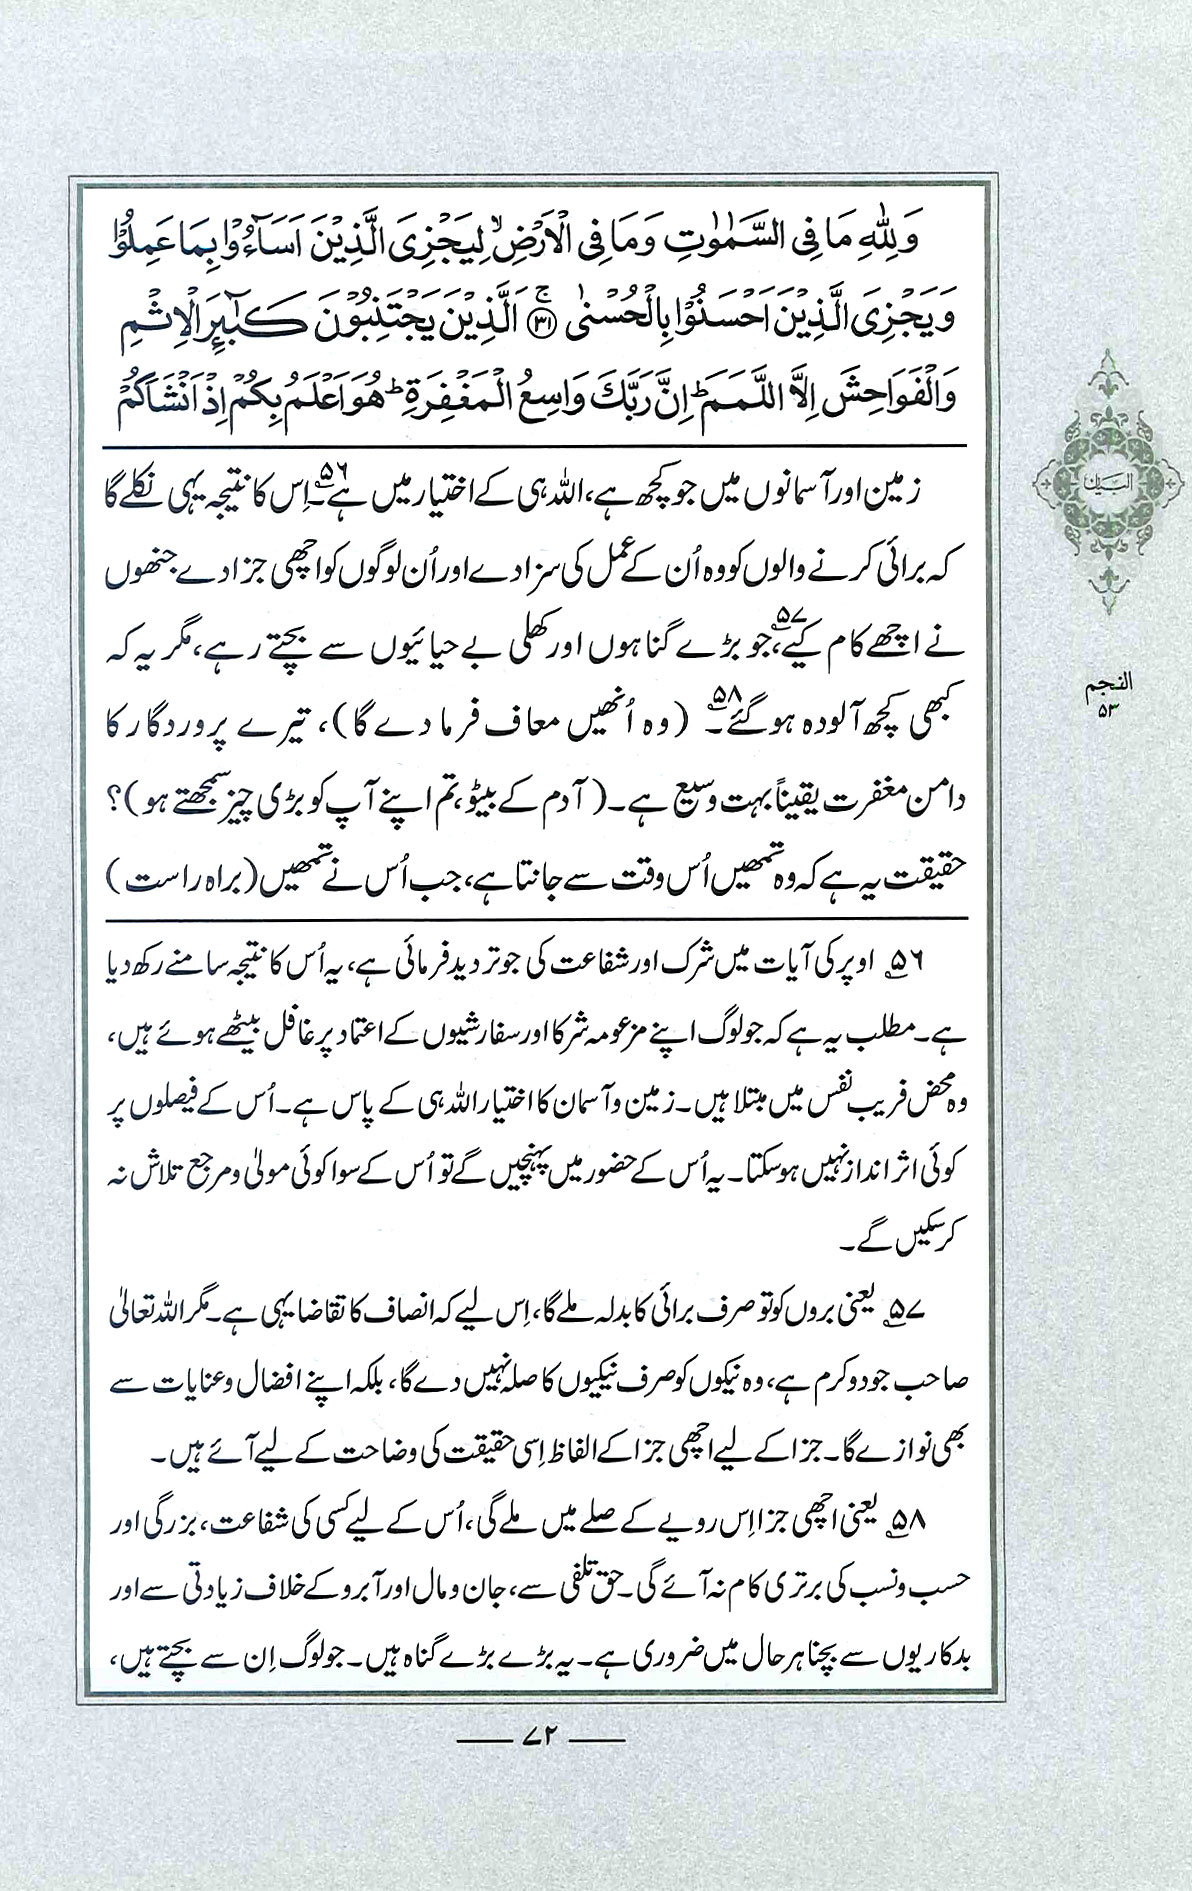 وَلِلّٰهِ مَا فِی السَّمٰوٰتِ وَمَا فِی الْاَرْضِ ۙ لِیَجْزِیَ الَّذِیْنَ اَسَآءُوْا بِمَا عَمِلُوْا
وَیَجْزِیَ الَّذِیْنَ اَحْسَنُوْا بِالْحُسْنٰی ۚ ﴿۳۱﴾ اَلَّذِیْنَ یَجْتَنِبُوْنَ كَبٰٓئِرَ الْاِثْمِ
وَالْفَوَاحِشَ اِلَّا اللَّمَمَ ؕ اِنَّ رَبَّكَ وَاسِعُ الْمَغْفِرَةِ ؕ هُوَ اَعْلَمُ بِكُمْ اِذْ اَنْشَاَكُمْ
زمین اور آسمانوں میں جو کچھ ہے، اللہ ہی کے اختیار میں ہے۔۵۶ اِس کا نتیجہ یہی نکلے گا
کہ برائی کرنے والوں کو وہ اُن کے عمل کی سزا دے اور اُن لوگوں کو اچھی جزا دے جنھوں
نے اچھے کام کیے،۵۷ جو بڑے گناہوں اور کھلی بے حیائیوں سے بچتے رہے، مگر یہ کہ
کبھی کچھ آلودہ ہو گئے۔۵۸ (وہ اُنھیں معاف فرما دے گا)، تیرے پروردگار کا
دامن مغفرت یقیناً بہت وسیع ہے۔ (آدم کے بیٹو، تم اپنے آپ کو بڑی چیز سمجھتے ہو)؟
حقیقت یہ ہے کہ وہ تمھیں اُس وقت سے جانتا ہے، جب اُس نے تمھیں (براہ راست)
۵۶ اوپر کی آیات میں شرک اور شفاعت کی جو تردید فرمائی ہے، یہ اُس کا نتیجہ سامنے رکھ دیا
ہے۔ مطلب یہ ہے کہ جو لوگ اپنے مزعومہ شرکا اور سفارشیوں کے اعتماد پر غافل بیٹھے ہوئے ہیں،
وہ محض فریب نفس میں مبتلا ہیں۔ زمین و آسمان کا اختیار اللہ ہی کے پاس ہے۔ اُس کے فیصلوں پر
کوئی اثر انداز نہیں ہو سکتا۔ یہ اُس کے حضور میں پہنچیں گے تو اُس کے سوا کوئی مولیٰ و مرجع تلاش نہ
کر سکیں گے۔
۵۷ یعنی بروں کو تو صرف برائی کا بدلہ ملے گا، اِس لیے کہ انصاف کا تقاضا یہی ہے۔ مگر اللہ تعالیٰ
صاحب جود و کرم ہے، وہ نیکوں کو صرف نیکیوں کا صلہ نہیں دے گا، بلکہ اپنے افضال و عنایات سے
بھی نوازے گا۔ جزا کے لیے اچھی جزا کے الفاظ اِسی حقیقت کی وضاحت کے لیے آئے ہیں۔
۵۸ یعنی اچھی جزا اِس رویے کے صلے میں ملے گی، اُس کے لیے کسی کی شفاعت، بزرگی اور
حسب و نسب کی برتری کام نہ آئے گی۔ حق تلفی سے، جان و مال اور آبرو کے خلاف زیادتی سے اور
بدکاریوں سے بچنا ہر حال میں ضروری ہے۔ یہ بڑے بڑے گناہ ہیں۔ جو لوگ اِن سے بچتے ہیں،
البیان
النجم
۵۳
۷۲